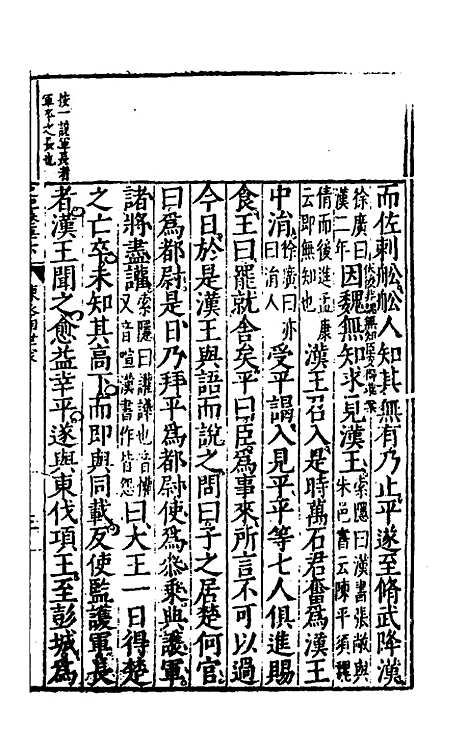 而佐刺舩舩人知其無有乃止平遂至脩武降漢
徐廣曰漢二年因魏無知求見漢王索隱曰漢書張敞與朱邑書云陳平須魏
倩而後進孟康云即無知也漢王召入是時萬石君奮為漢王
中涓徐廣曰亦曰涓人受平謁入見平平等七人俱進賜
食王曰罷就舍矣平曰臣為事來所言不可以過
今日於是漢王與語而說之問曰子之居楚何官
曰為都尉是日乃拜平為都尉使為參乘典護軍
諸將盡讙索隱曰讙譁也音懽又音喧漢書作皆怨曰大王一日得楚
之亡卒未知其高下而即與同載反使監護軍長
者漢王聞之愈益幸平遂與東伐項王至彭城為
按一說軍長者
軍卒之長也